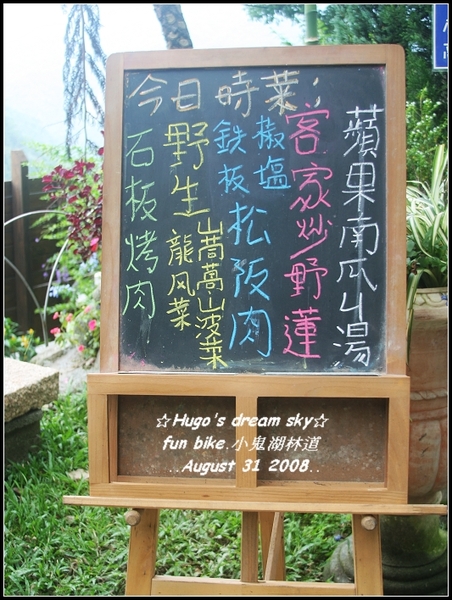 今日時菜:
蘋果南瓜山湯
客家炒野蓮
椒塩
鉄板松阪肉
野生山茼蒿山波菜
龍风菜
石板烤肉
☆Hugo's dream sky☆
fun bike.小鬼湖林道
..August 31 2008..